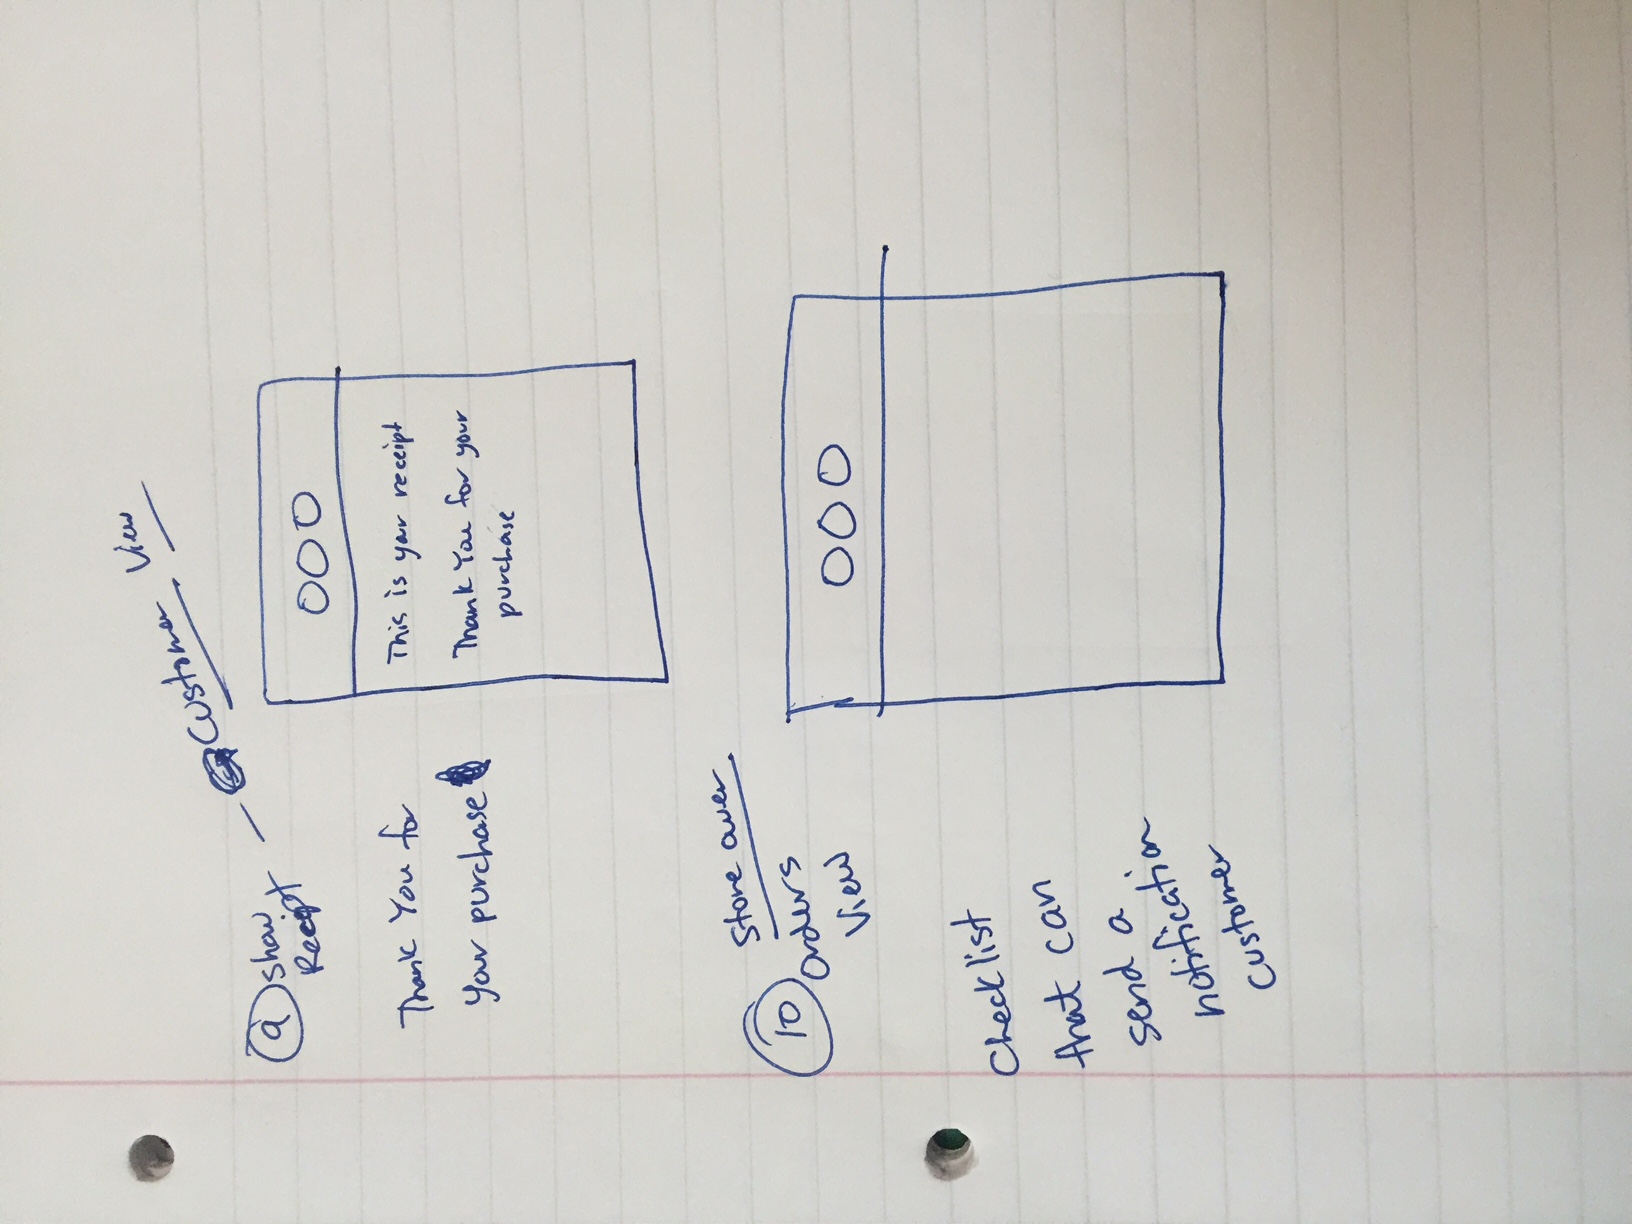 9 Show
Receipt - Customer View
Thank You for
Your purchase
This is your receipt
Thank You for your
purchase
10 Store owner
Orders
View
Checklist
that can
send a
notification
customer